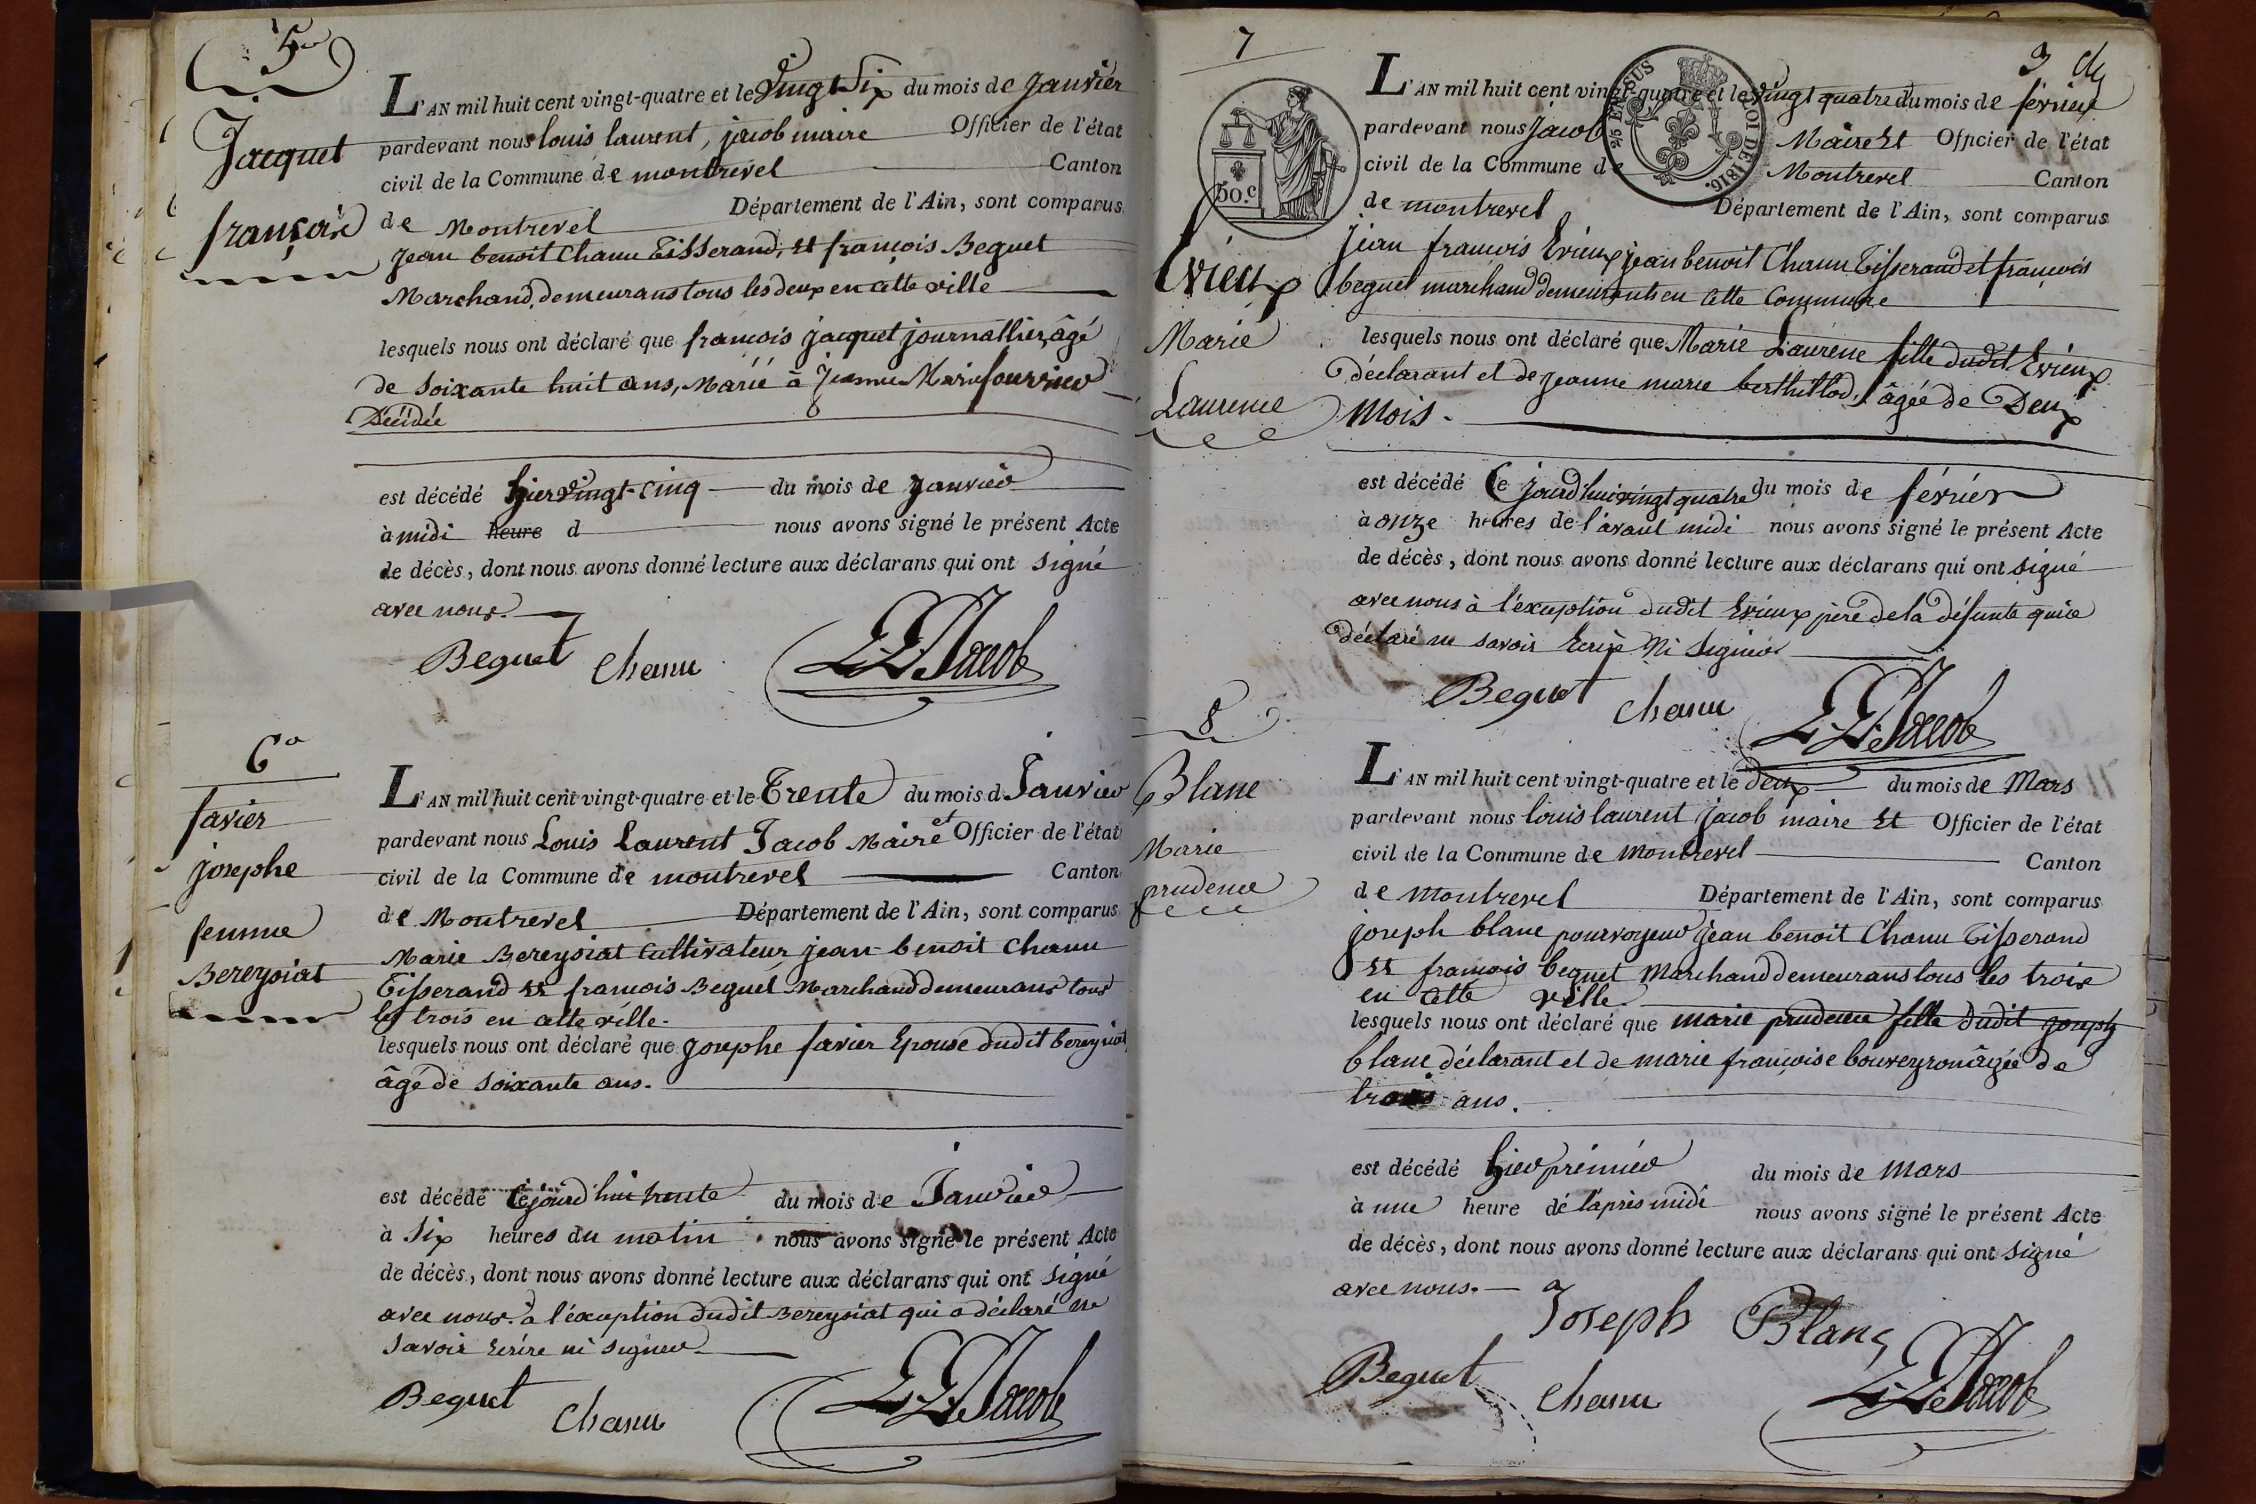 5e
Jacquet
françois
L'AN mil huit cent vingt-quatre et le vingt Six du mois de Janvier
pardevant nous louis laurent, jacob maire Officier de l'état
civil de la Commune de montrevel Canton
de Montrevel Département de l'Ain, sont comparus
Jean benoit Chanu Tisserand, et françois Beguet
Marchand, demeurans tous les deux en cette ville
lesquels nous ont déclaré que françois jacquet journallier, âgé
de soixante huit ans, Marié à Jeanne Marie
Décédée
est décédé hier vingt-cinq du mois de Janvier
à midi heure d nous avons signé le présent Acte
de décès, dont nous avons donné lecture aux déclarans qui ont signé
avec nous.
Beguet Chanu L. L. Jacob
6e
favier
josephe
femme
Bereysiat
L'AN mil huit cent vingt-quatre et le Trente du mois d Janvier
pardevant nous Louis Laurent Jacob Maire et Officier de l'état
civil de la Commune de montrevel Canton
de Montrevel Département de l'Ain, sont comparus
Marie Bereysiat Cultivateur jean-benoit Chanu
Tisserand et françois Beguet Marchand demeurans tous
les trois en cette ville.
lesquels nous ont déclaré que josephe favier Epouse dudit bereysiat
âgé de soixante ans.
est décédé Cejourd'hui trente du mois de Janvier
à Six heures du matin nous avons signé le présent Acte
de décès, dont nous avons donné lecture aux déclarans qui ont signé
avec nous. à l'éxception dudit Bereysiat qui a déclaré ne
savoir écrire ni signer
Beguet Chanu L. L. Jacob
7
3
Evieux
Marie
Laurence
50.c
25 EN SUS
LOI DE 1816.
L'AN mil huit cent vingt-quatre et le vingt quatre du mois de février
pardevant nous Jacob Maire Et Officier de l'état
civil de la Commune de Montrevel Canton
de montrevel Département de l'Ain, sont comparus
jean françois Evieux jean benoit Chanu Tisserand et françois
beguet marchand demeurants en cette Commune
lesquels nous ont déclaré que Marie Laurence fille dudit Evieux
déclarant et de jeanne marie berthillod, âgée de Deux
mois.
est décédé Ce jourd'hui vingt quatre du mois de février
à onze heures de l'avant midi nous avons signé le présent Acte
de décès, dont nous avons donné lecture aux déclarans qui ont signé
avec nous à l'éxception dudit Evieux père de la défunte qui a
déclaré ne savoir Ecrire Ni Signer
Beguet Chanu L. L. Jacob
8
Blanc
Marie
prudence
L'AN mil huit cent vingt-quatre et le deux du mois de Mars
pardevant nous louis laurent jacob maire Et Officier de l'état
civil de la Commune de Montrevel Canton
de montrevel Département de l'Ain, sont comparus
joseph blanc pourvoyeur jean benoit Chanu Tisserand
et françois beguet Marchand demeurans tous les trois
en cette ville.
lesquels nous ont déclaré que marie prudence fille dudit joseph
blanc déclarant et de marie françoise bouveyron âgée de
trois ans.
est décédé hier premier du mois de mars
à une heure de l'après midi nous avons signé le présent Acte
de décès, dont nous avons donné lecture aux déclarans qui ont signé
avec nous.
Joseph Blanc
Beguet Chanu L. L. Jacob